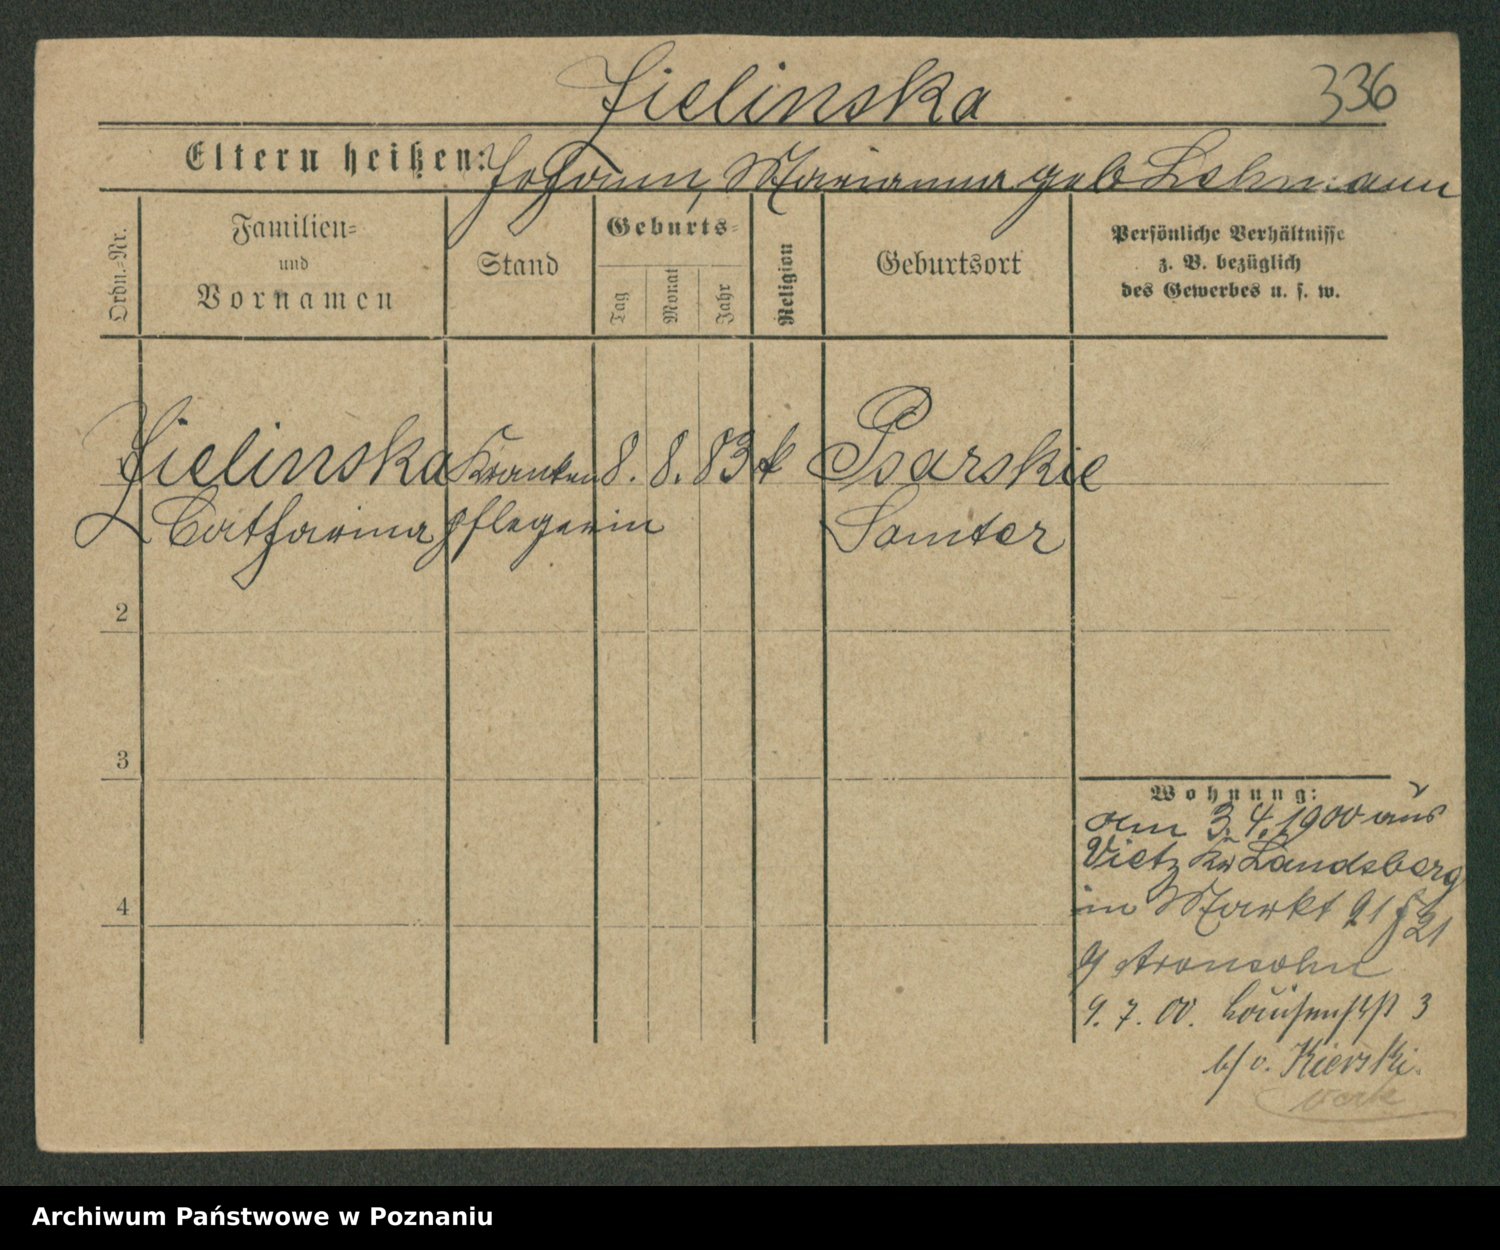 Zielinska 336
Eltern heißen: Johann, Marianna geb Lehmann
Ordn.=Nr.
Familien=
und
Vornamen
Stand
Geburts=
Tag
Monat
Jahr
Religion
Geburtsort
Persönliche Verhältnisse
z. B. bezüglich
des Gewerbes u. s. w.
Zielinska Kranken 8. 8. 83 k Psarskie
Catharina pflegerin Samter
2
3
4
Wohnung:
am 3. 4. 1900 aus
Vietz Kr Landsberg
in Markt 91
Aronsohn
9. 7. 00. Louisenstr 3
b/ v. Kierski.